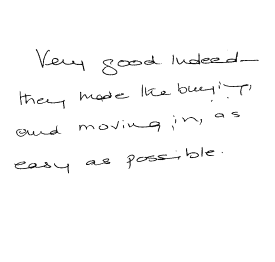 Very good indeed –
they made the buying,
and moving in, as
easy as possible.